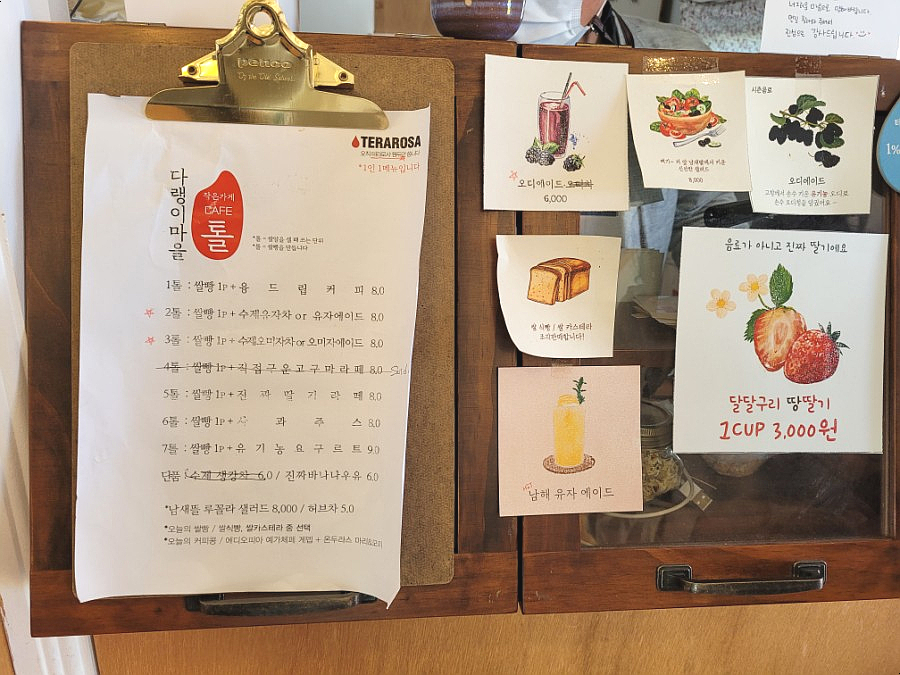 penco
TERAROSA
*1인 1메뉴입니다
다랭이마을
작은카페
CAFE
톨
*톨 = 쌀알을 셀 때 쓰는 단위
*톨 = 쌀빵을 만듭니다
1톨 : 쌀빵 1P + 융드립커피 8.0
2톨 : 쌀빵 1P + 수제유자차 or 유자에이드 8.0
3톨 : 쌀빵 1P + 수제오미자차 or 오미자에이드 8.0
4톨 : 쌀빵 1P + 직접구운고구마라떼 8.0
5톨 : 쌀빵 1P + 진짜딸기라떼 8.0
6톨 : 쌀빵 1P + 사과주스 8.0
7톨 : 쌀빵 1P + 유기농요구르트 9.0
단품 : 수제 생강차 6.0 / 진짜바나나우유 6.0
*남새뜰 루꼴라 샐러드 8,000 / 허브차 5.0
*오늘의 쌀빵 / 쌀식빵, 쌀카스테라 중 선택
*오늘의 커피콩 / 에디오피아 예가체페 게뎁 + 온두라스
오디에이드·오디차
6,000
신선한 샐러드
8,000
시즌음료
오디에이드
고랑에서 손수 키운 유기농 오디로
쌀 식빵 / 쌀 카스테라
조각판매합니다!
남해 유자 에이드
음료가 아니고 진짜 딸기에요
달달구리 땅딸기
1CUP 3,000원
감사드립니다
1%